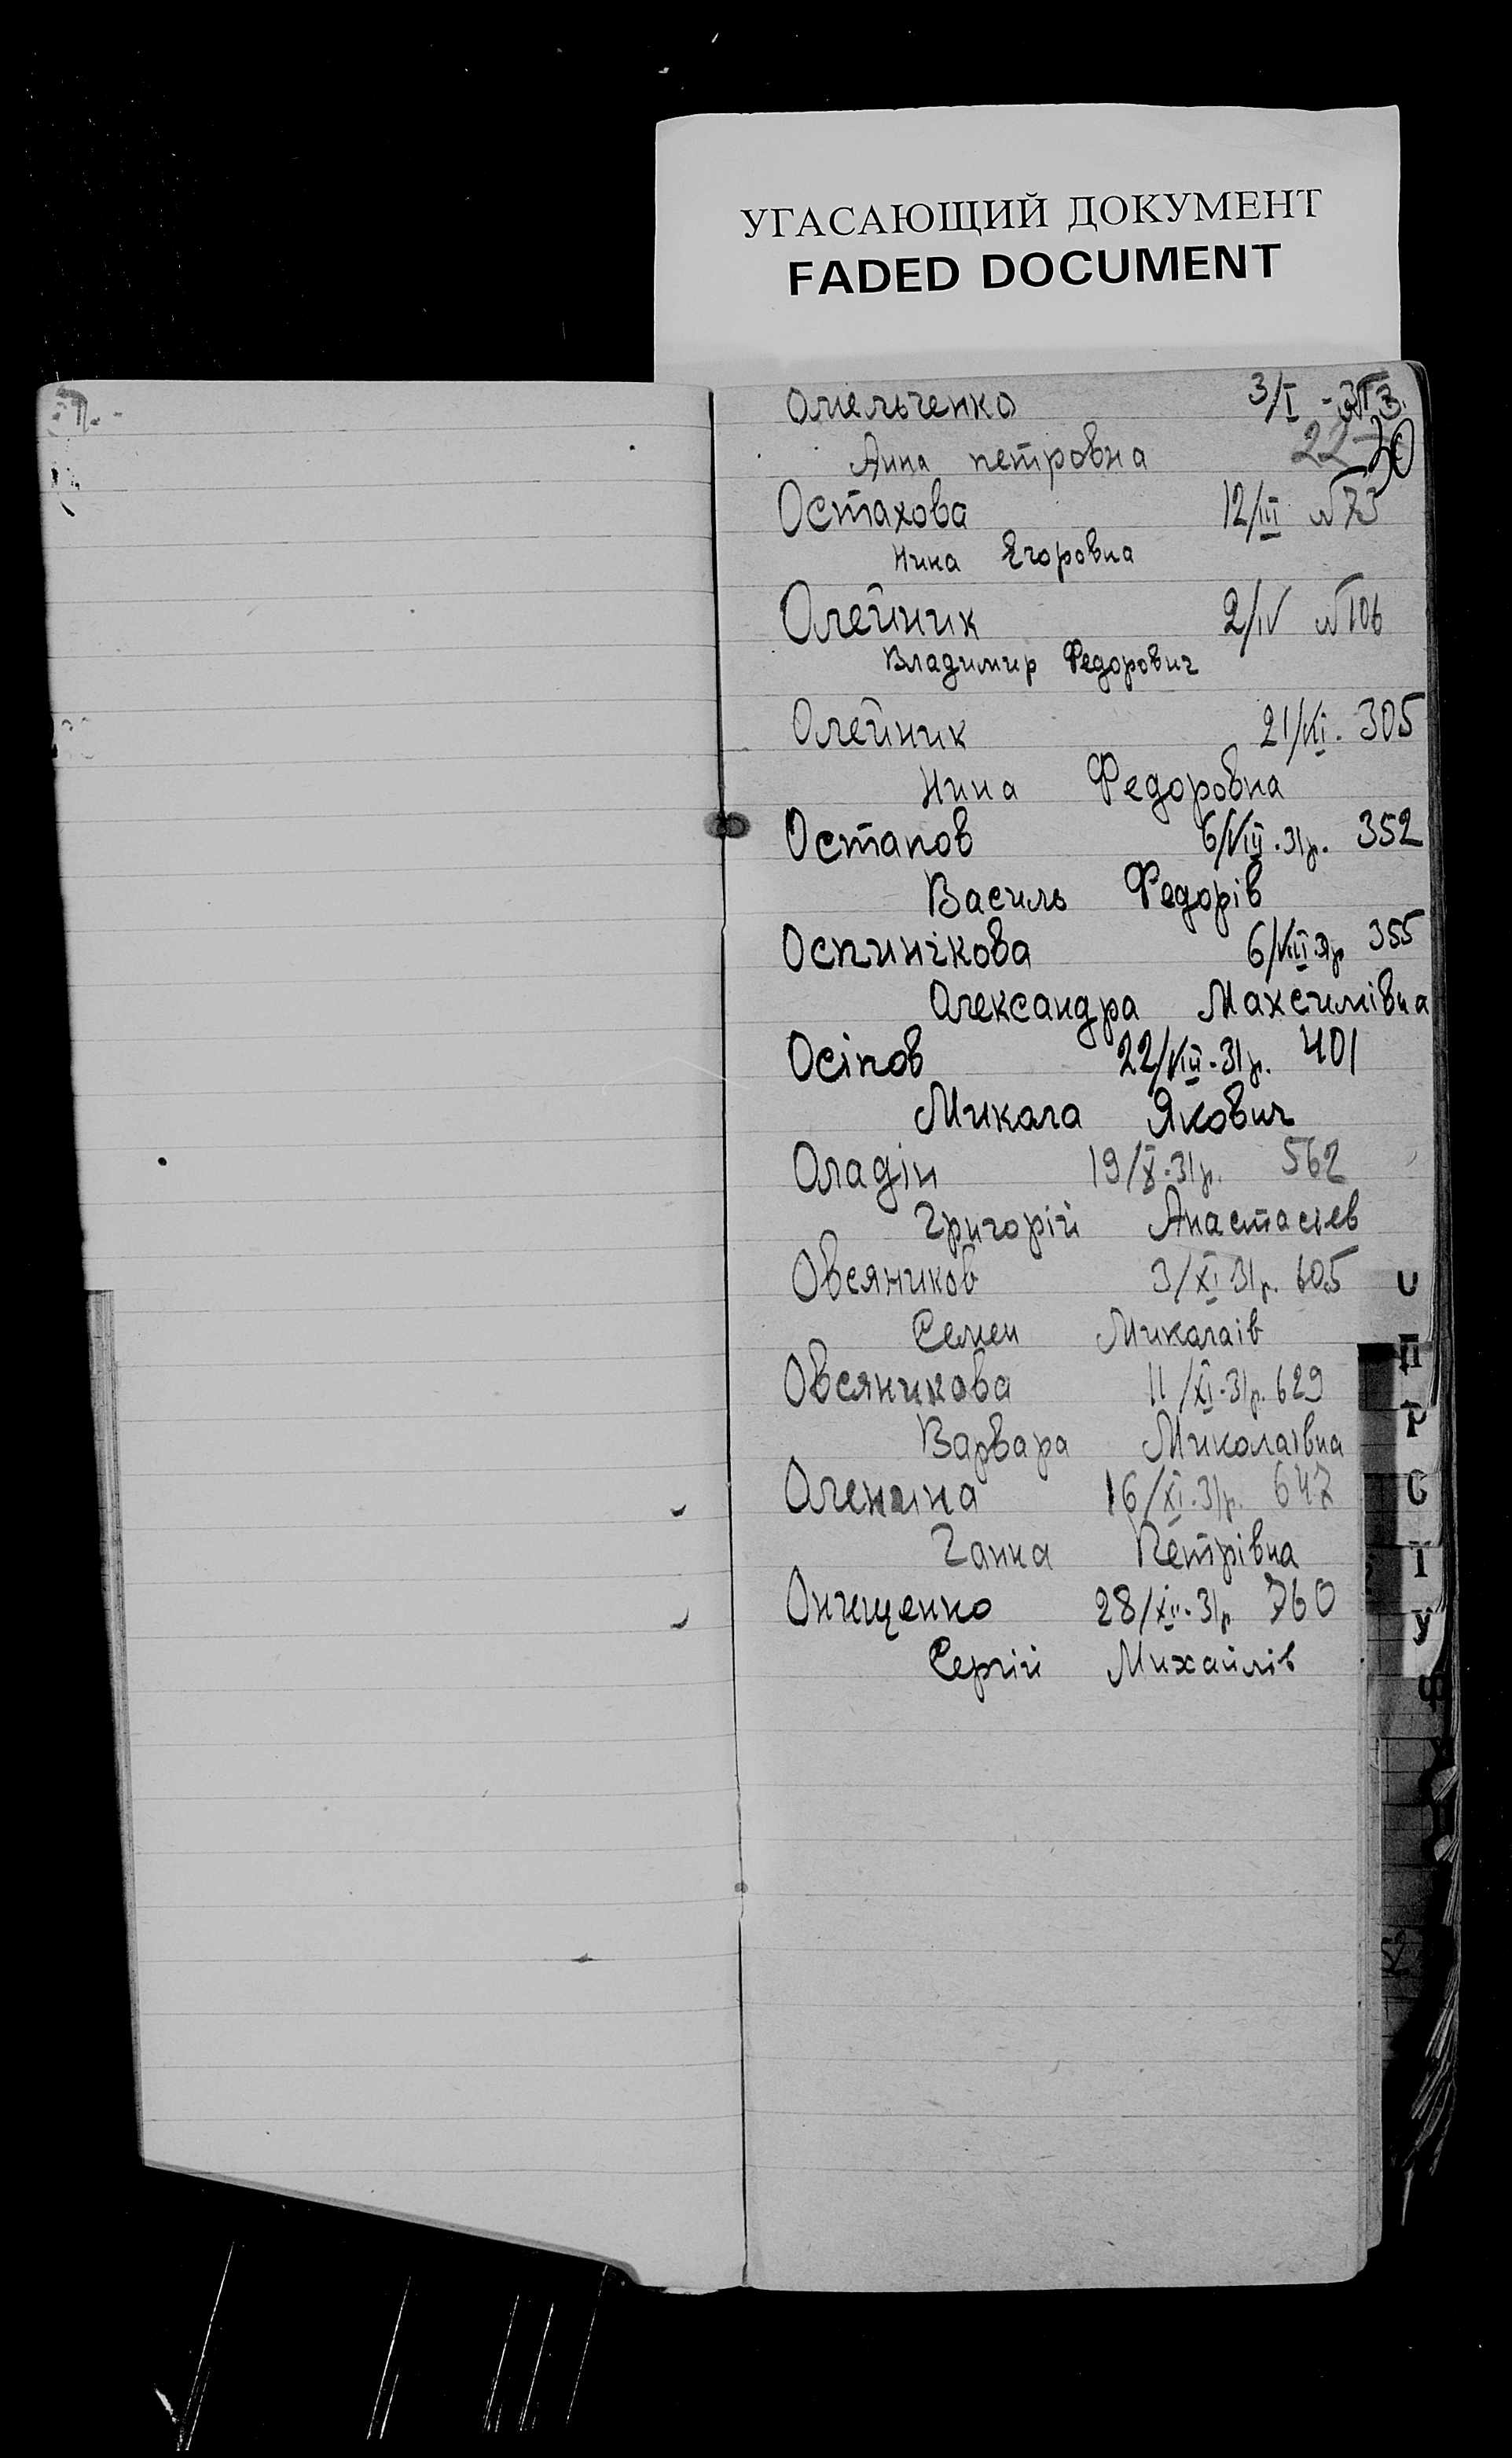 УГАСАЮЩИЙ ДОКУМЕНТ
FADED DOCUMENT
Омельченко 3/I - №3.
Анна петровна 22 30
Остахова 12/III №73
Нина Егоровна
Олейник 2/IV №106
Владимир Федорович
Олейник 21/VII. 305
Нина Федоровна
Остапов 6/VIII.31р. 352
Василь Федорів
Оспинікова 6/VIII 31р 355
Олександра Максимівна
Осіпов 22/VIII.31р. 401
Микола Якович
Оладін 19/X.31р. 562
Григорій Анастасіев
Овсяников 3/XI 31р. 605
Семен Миколаів
Овсяникова 11/XI.31р. 629
Варвара Миколаівна
16/XI.31р. 647
Ганна Петрівна
Онищенко 28/XII.31р. 760
Сергій Михайлів
О
П
Р
С
Т
У
Ф